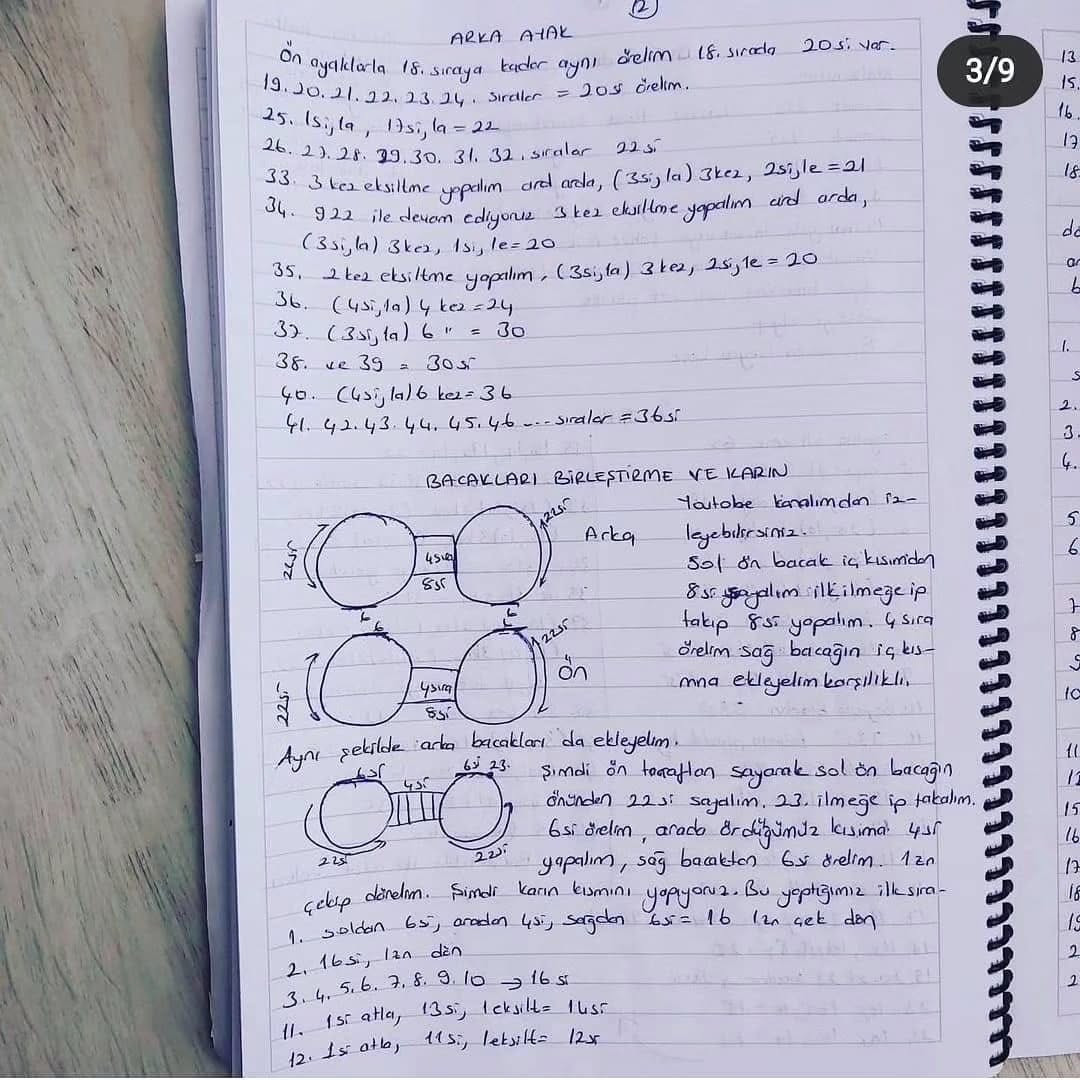 2
3/9
ARKA AYAK
Ön ayaklarla 18. sıraya kadar aynı örelim 18. sırada 20si var.
19. 20. 21. 22. 23. 24. sıralar = 20si örelim.
25. 1si, 1a, 17si, 1a = 22
26. 27. 28. 29. 30. 31. 32. sıralar 22si
33. 3 kez eksiltme yapalım ard arda, (3si, 1a) 3kez, 2si, 1e = 21
34. 922 ile devam ediyoruz 3 kez eksiltme yapalım ard arda,
(3si, 1a) 3kez, 1si, 1e = 20
35. 2 kez eksiltme yapalım, (3si, 1a) 3 kez, 2si, 1e = 20
36. (4si, 1a) 4 kez = 24
37. (3si, 1a) 6 " = 30
38. ve 39 = 30si
40. (4si, 1a) 6 kez = 36
41. 42. 43. 44. 45. 46 --- sıralar = 36si
BACAKLARI BİRLEŞTİRME VE KARIN
22si
4sıra
8si
22si
Arka
6
6
6
6
22si
4sıra
8si
22si
Ön
Youtobe kanalımdan iz-
leyebilirsiniz.
Sol ön bacak iç kısımdan
8si sayalım ilk ilmeğe ip
takıp 8si yapalım. 4 sıra
örelim sağ bacağın iç kıs-
mına ekleyelim karşılıklı.
Aynı şekilde arka bacakları da ekleyelim.
6si
4si
6si 23.
22si
22si
Şimdi ön taraftan sayarak sol ön bacağın
önünden 22si sayalım. 23. ilmeğe ip takalım.
6si örelim, arada ördüğümüz kısıma 4si
yapalım, sağ bacaktan 6si örelim. 1zn
çekip dönelim. Şimdi karın kısmını yapıyoruz. Bu yaptığımız ilk sıra-
1. soldan 6si, aradan 4si, sağdan 6si = 16 1zn çek dön
2. 16si, 1zn dön
3. 4. 5. 6. 7. 8. 9. 10 → 16 si
11. 1si atla, 13si, 1eksilt = 14si
12. 1si atla, 11si, 1eksilt = 12si
13
15.
16.
17
18
1.
2.
3.
4.
5
6
7
8
10
11
15
16
17
18